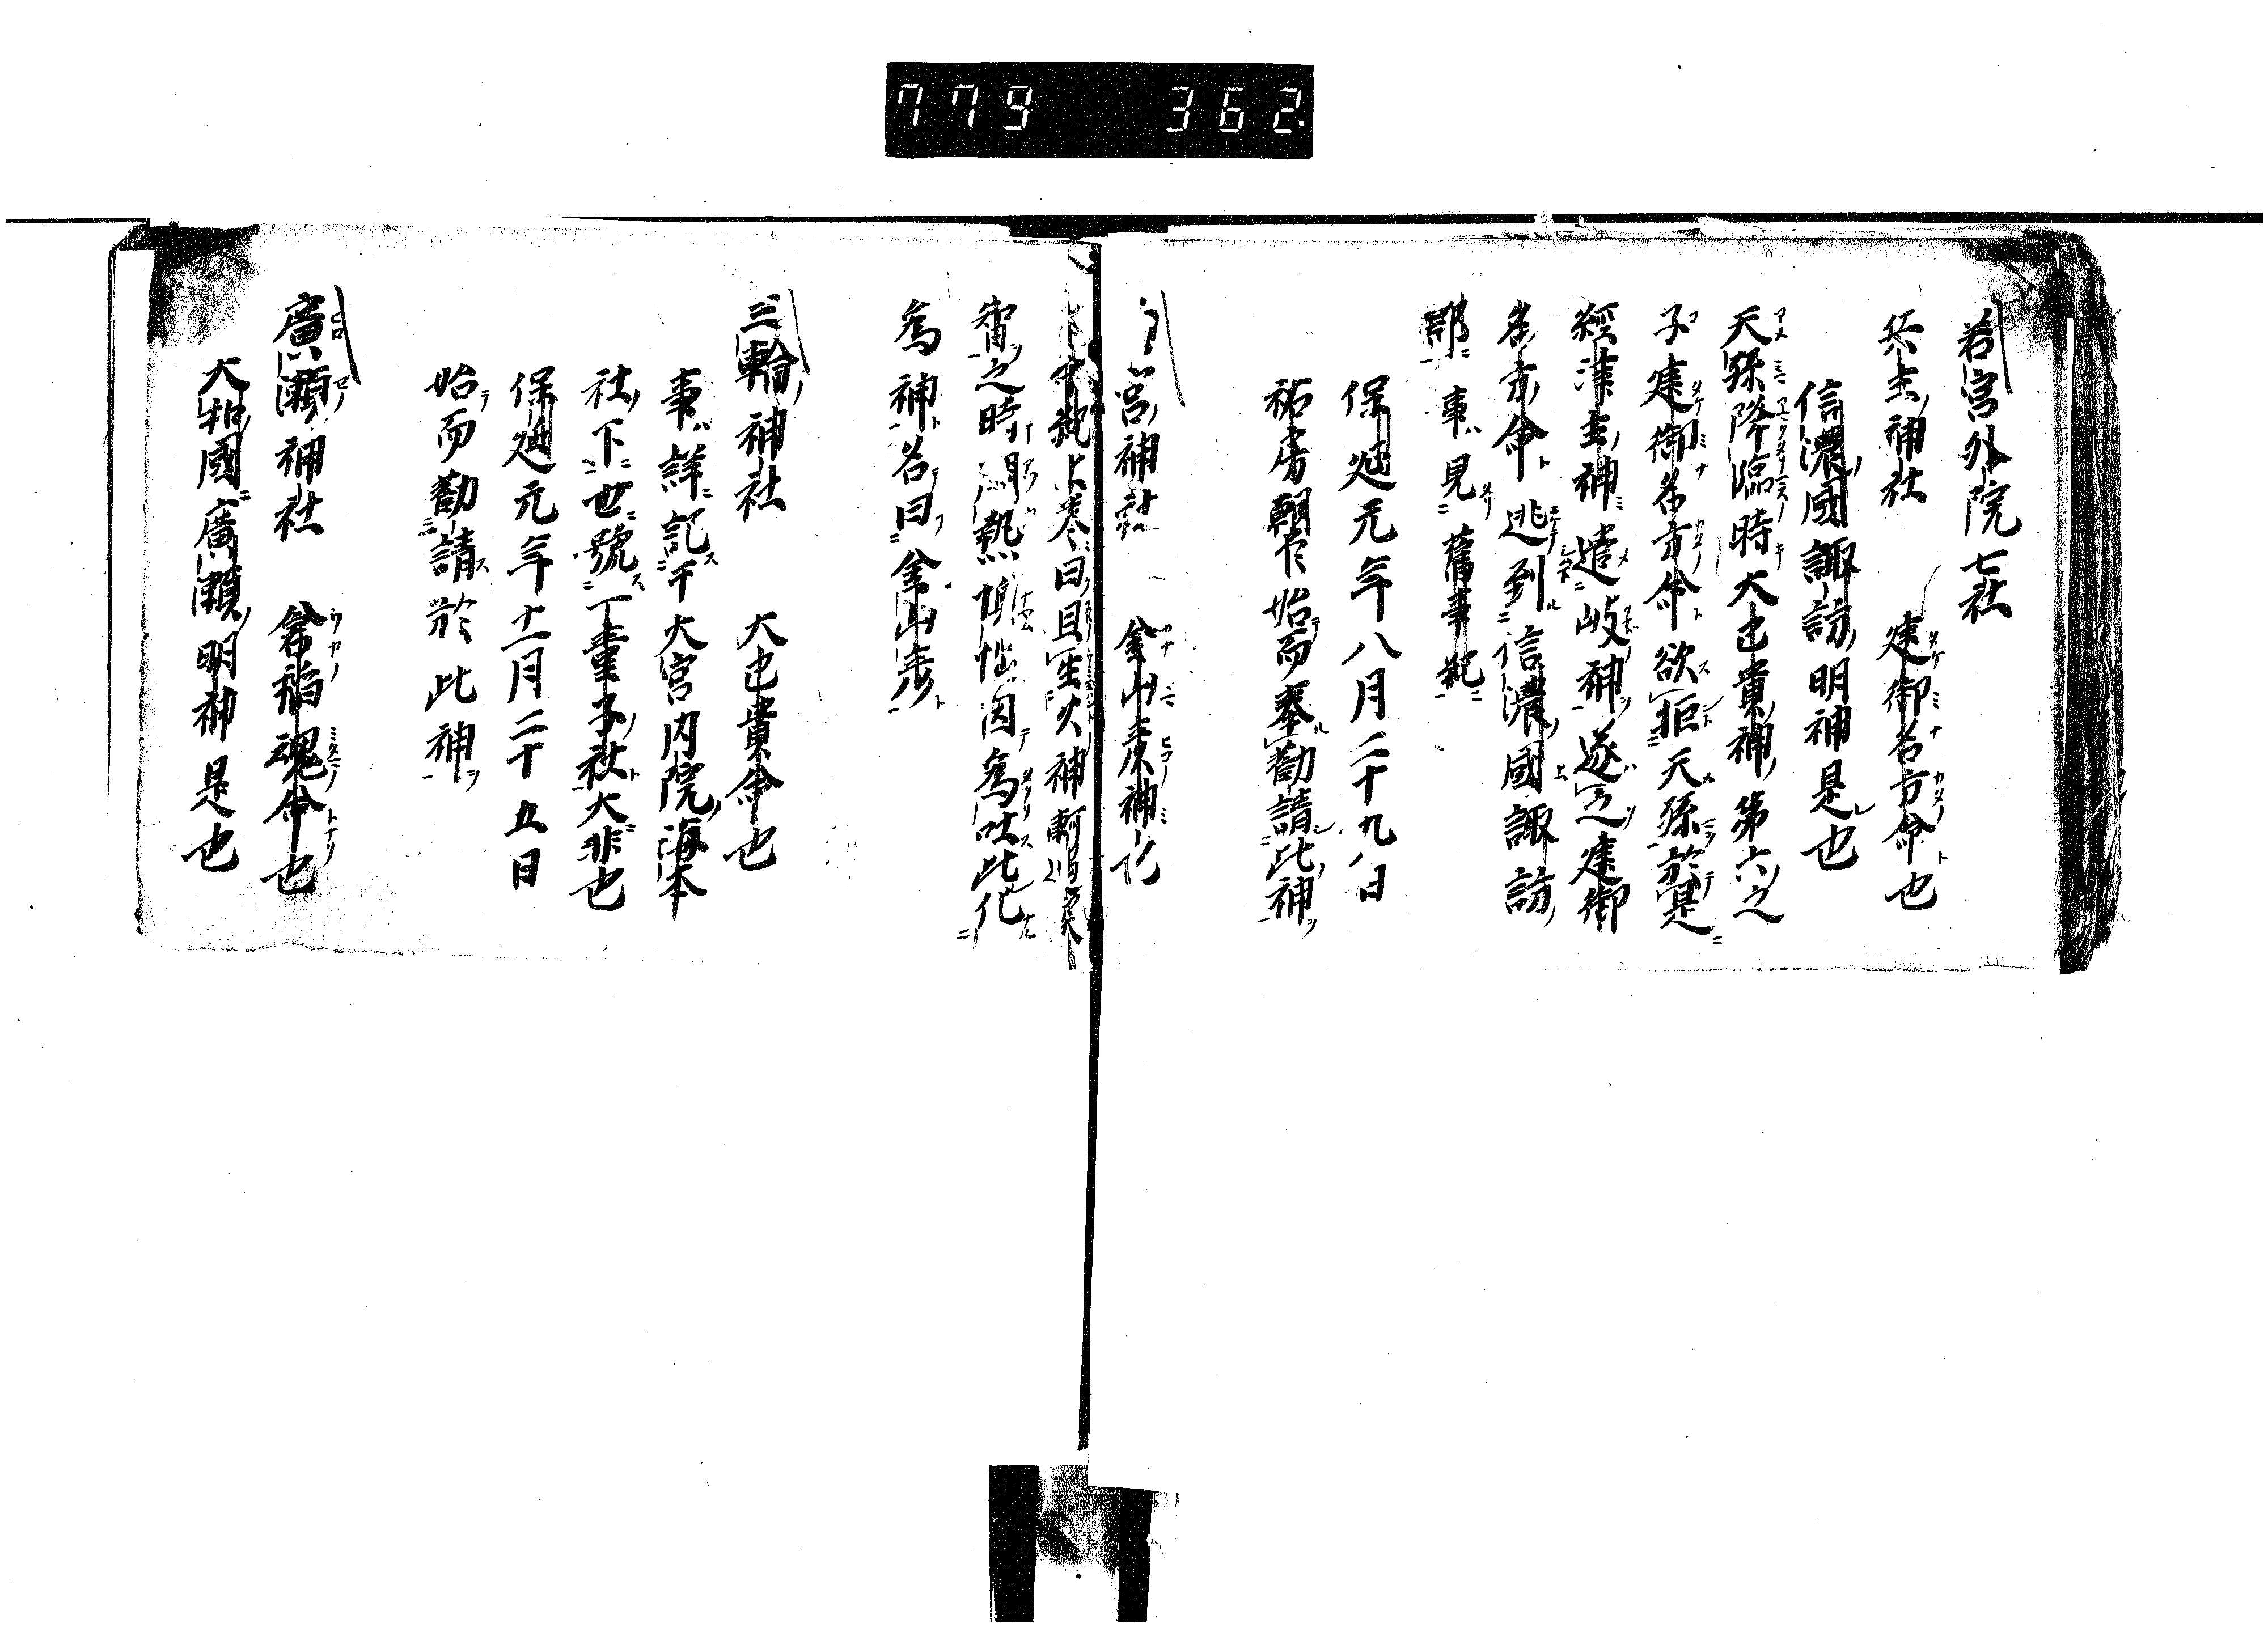 779 362
若宮外院七社
兵主神社 建御名方命也
信濃國諏訪明神是也
天孫降臨時大己貴神第六之
子建御名方命欲拒天孫於是
經津主神遣岐神逐之建御
名方命逃到信濃國諏訪
郡事見舊事紀
保延元年八月二十九日
祐房朝臣始而奉勸請此神
宮神社 金山彦神
紀上卷曰且生火神軻遇突
智之時悶熱懊惱因爲吐此化
爲神名曰金山彦
三輪神社 大己貴命也
事詳記于大宮内院海本
社下世號丁童子社大非也
保延元年十一月二十五日
始而勸請於此神
廣瀬神社 倉稻魂命也
大和國廣瀬明神是也